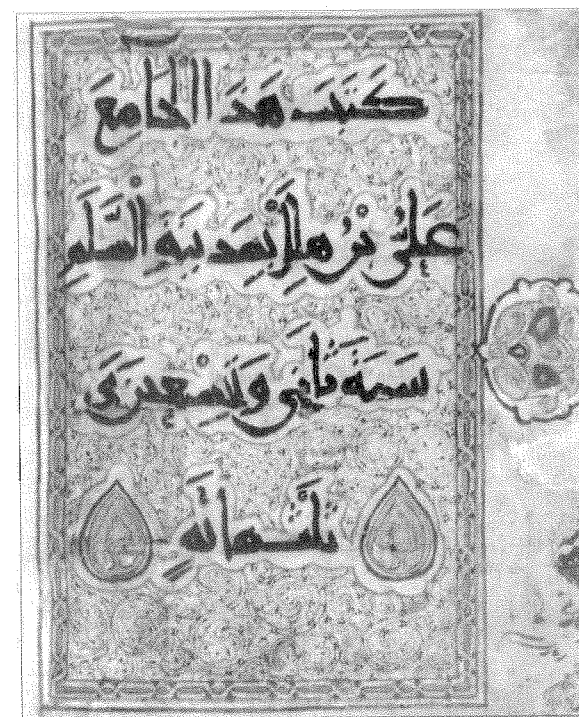 كَتَبَ هَذَا الجَامِعَ
عَلِيُّ بْنُ هِلَالٍ بِمَدِينَةِ السَّلَمِ
سَنَةَ ثَمَانِي وَتِسْعِينَ وَ
ثَلَثَمِائَةٍ